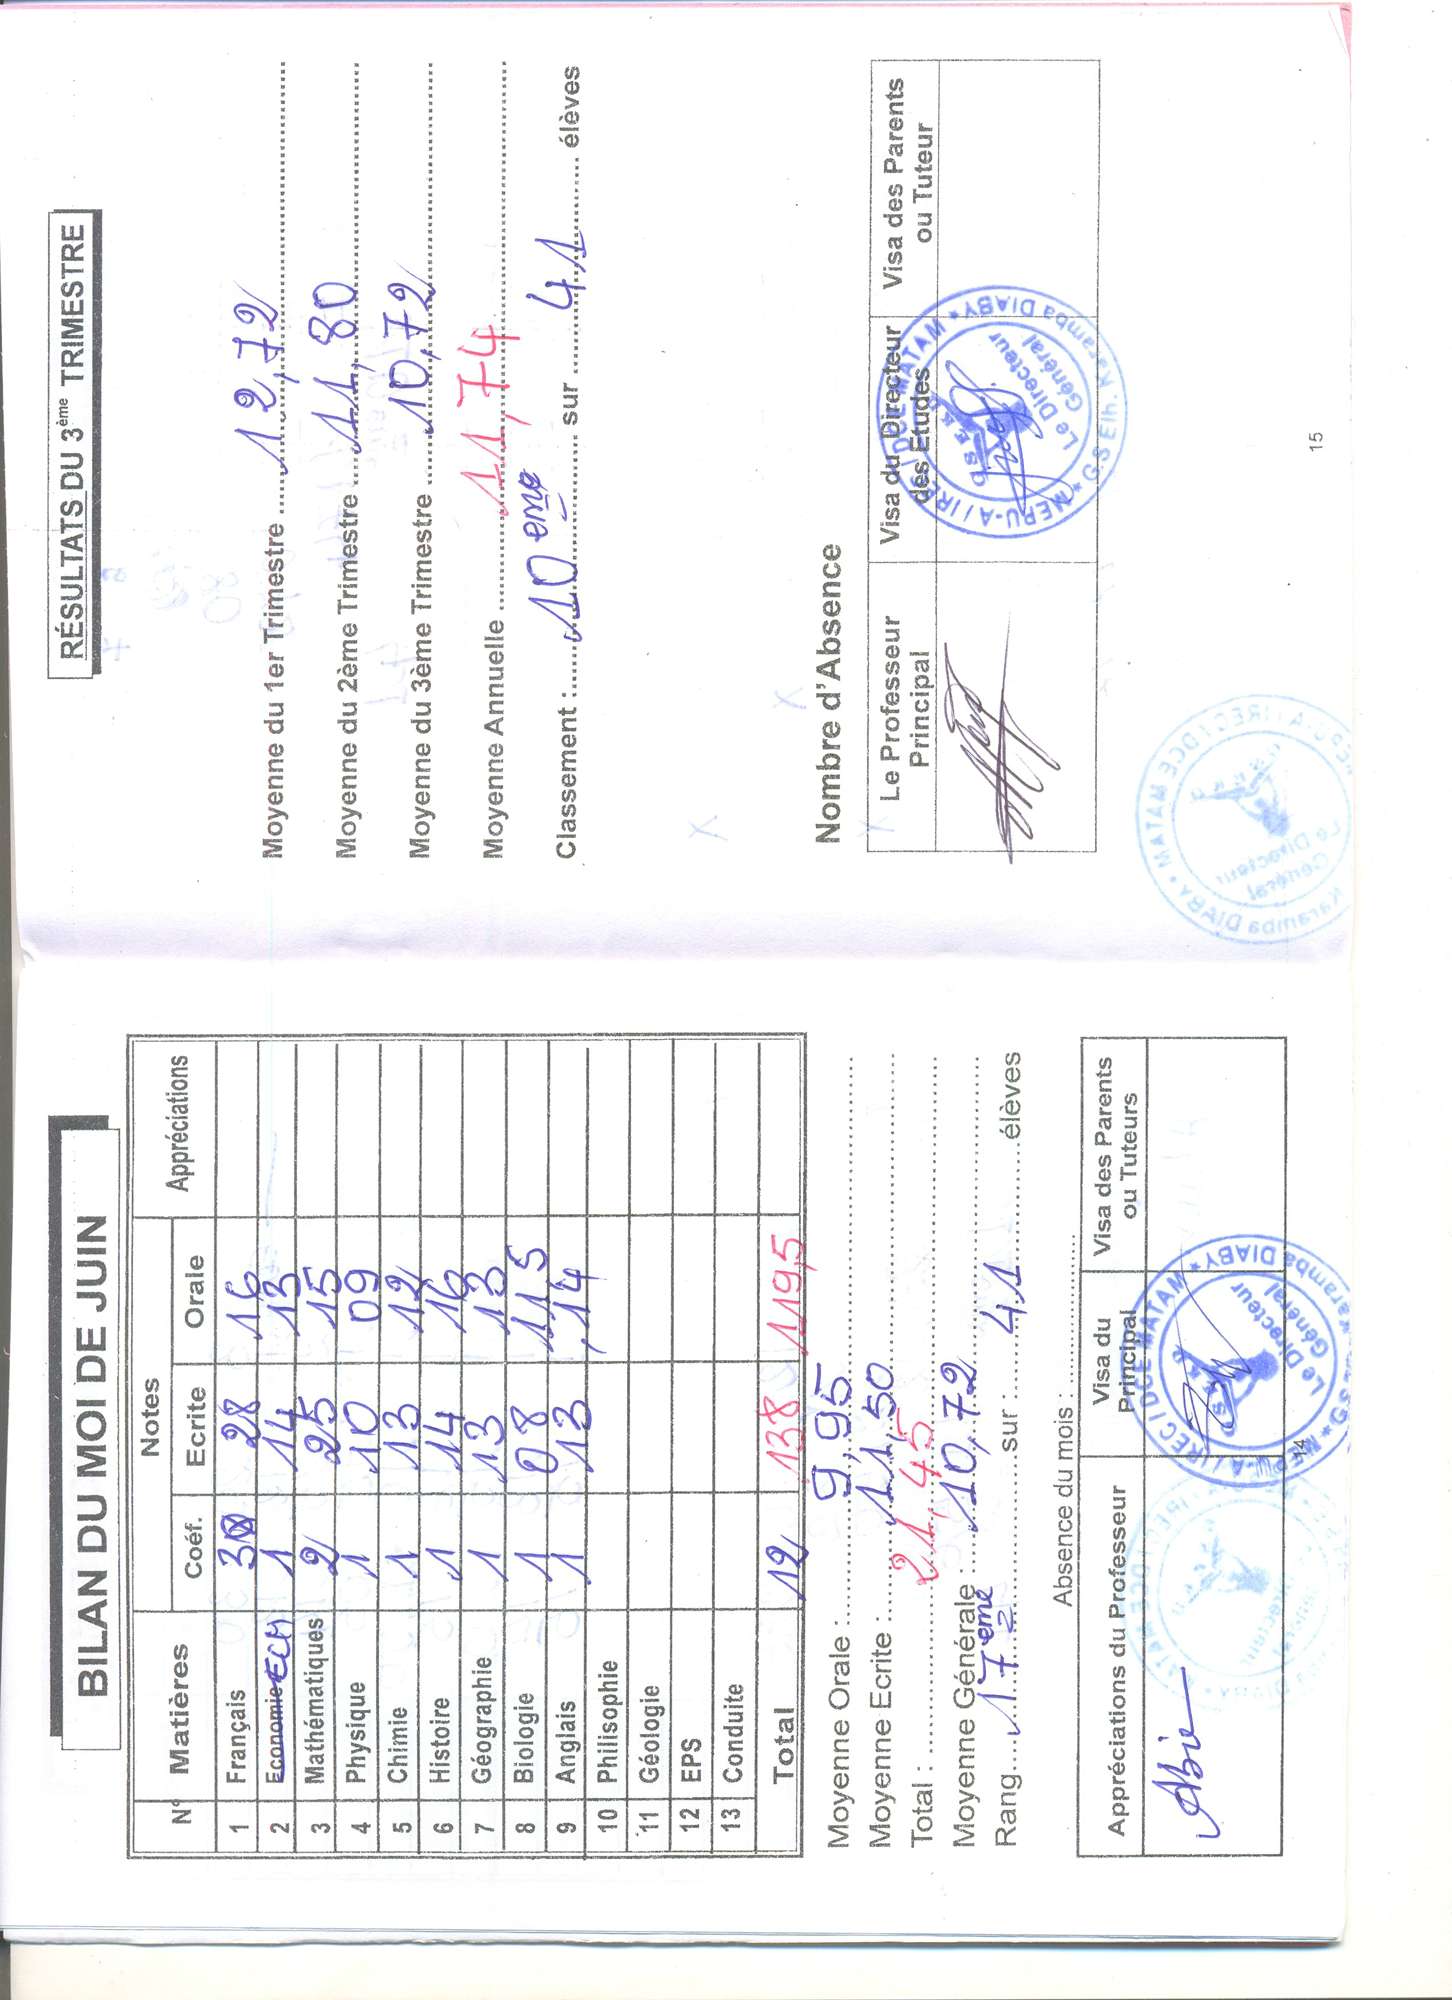 BILAN DU MOI DE JUIN
N° Matières Notes Appréciations
Coéf. Ecrite Orale
1 Français 3 28 16
2 Economie ECM 1 14 13
3 Mathématiques 2 25 15
4 Physique 1 10 09
5 Chimie 1 13 12
6 Histoire 1 14 16
7 Géographie 1 13 13
8 Biologie 1 08 11,5
9 Anglais 1 13 14
10 Philisophie
11 Géologie
12 EPS
13 Conduite
Total 12 138 119,5
Moyenne Orale : 9,95
Moyenne Ecrite : 11,50
Total : 21,45
Moyenne Générale : 10,72
Rang 17eme sur : 41 élèves
Absence du mois :
Appréciations du Professeur Visa du Principal Visa des Parents ou Tuteurs
MEPU-A / IREC / DCE MATAM * G.S Elh. Karamba DIABY *
G.S.E.K.D
Le Directeur
Général
14
RÉSULTATS DU 3ème TRIMESTRE
Moyenne du 1er Trimestre 12,72
Moyenne du 2ème Trimestre 11,80
Moyenne du 3ème Trimestre 10,72
Moyenne Annuelle 11,74
Classement : 10eme sur 41 élèves
Nombre d'Absence
Le Professeur Principal Visa du Directeur des Etudes Visa des Parents ou Tuteur
MEPU-A / IREC / DCE MATAM * G.S Elh. Karamba DIABY *
G.S.E.K.D
Le Directeur
Général
15